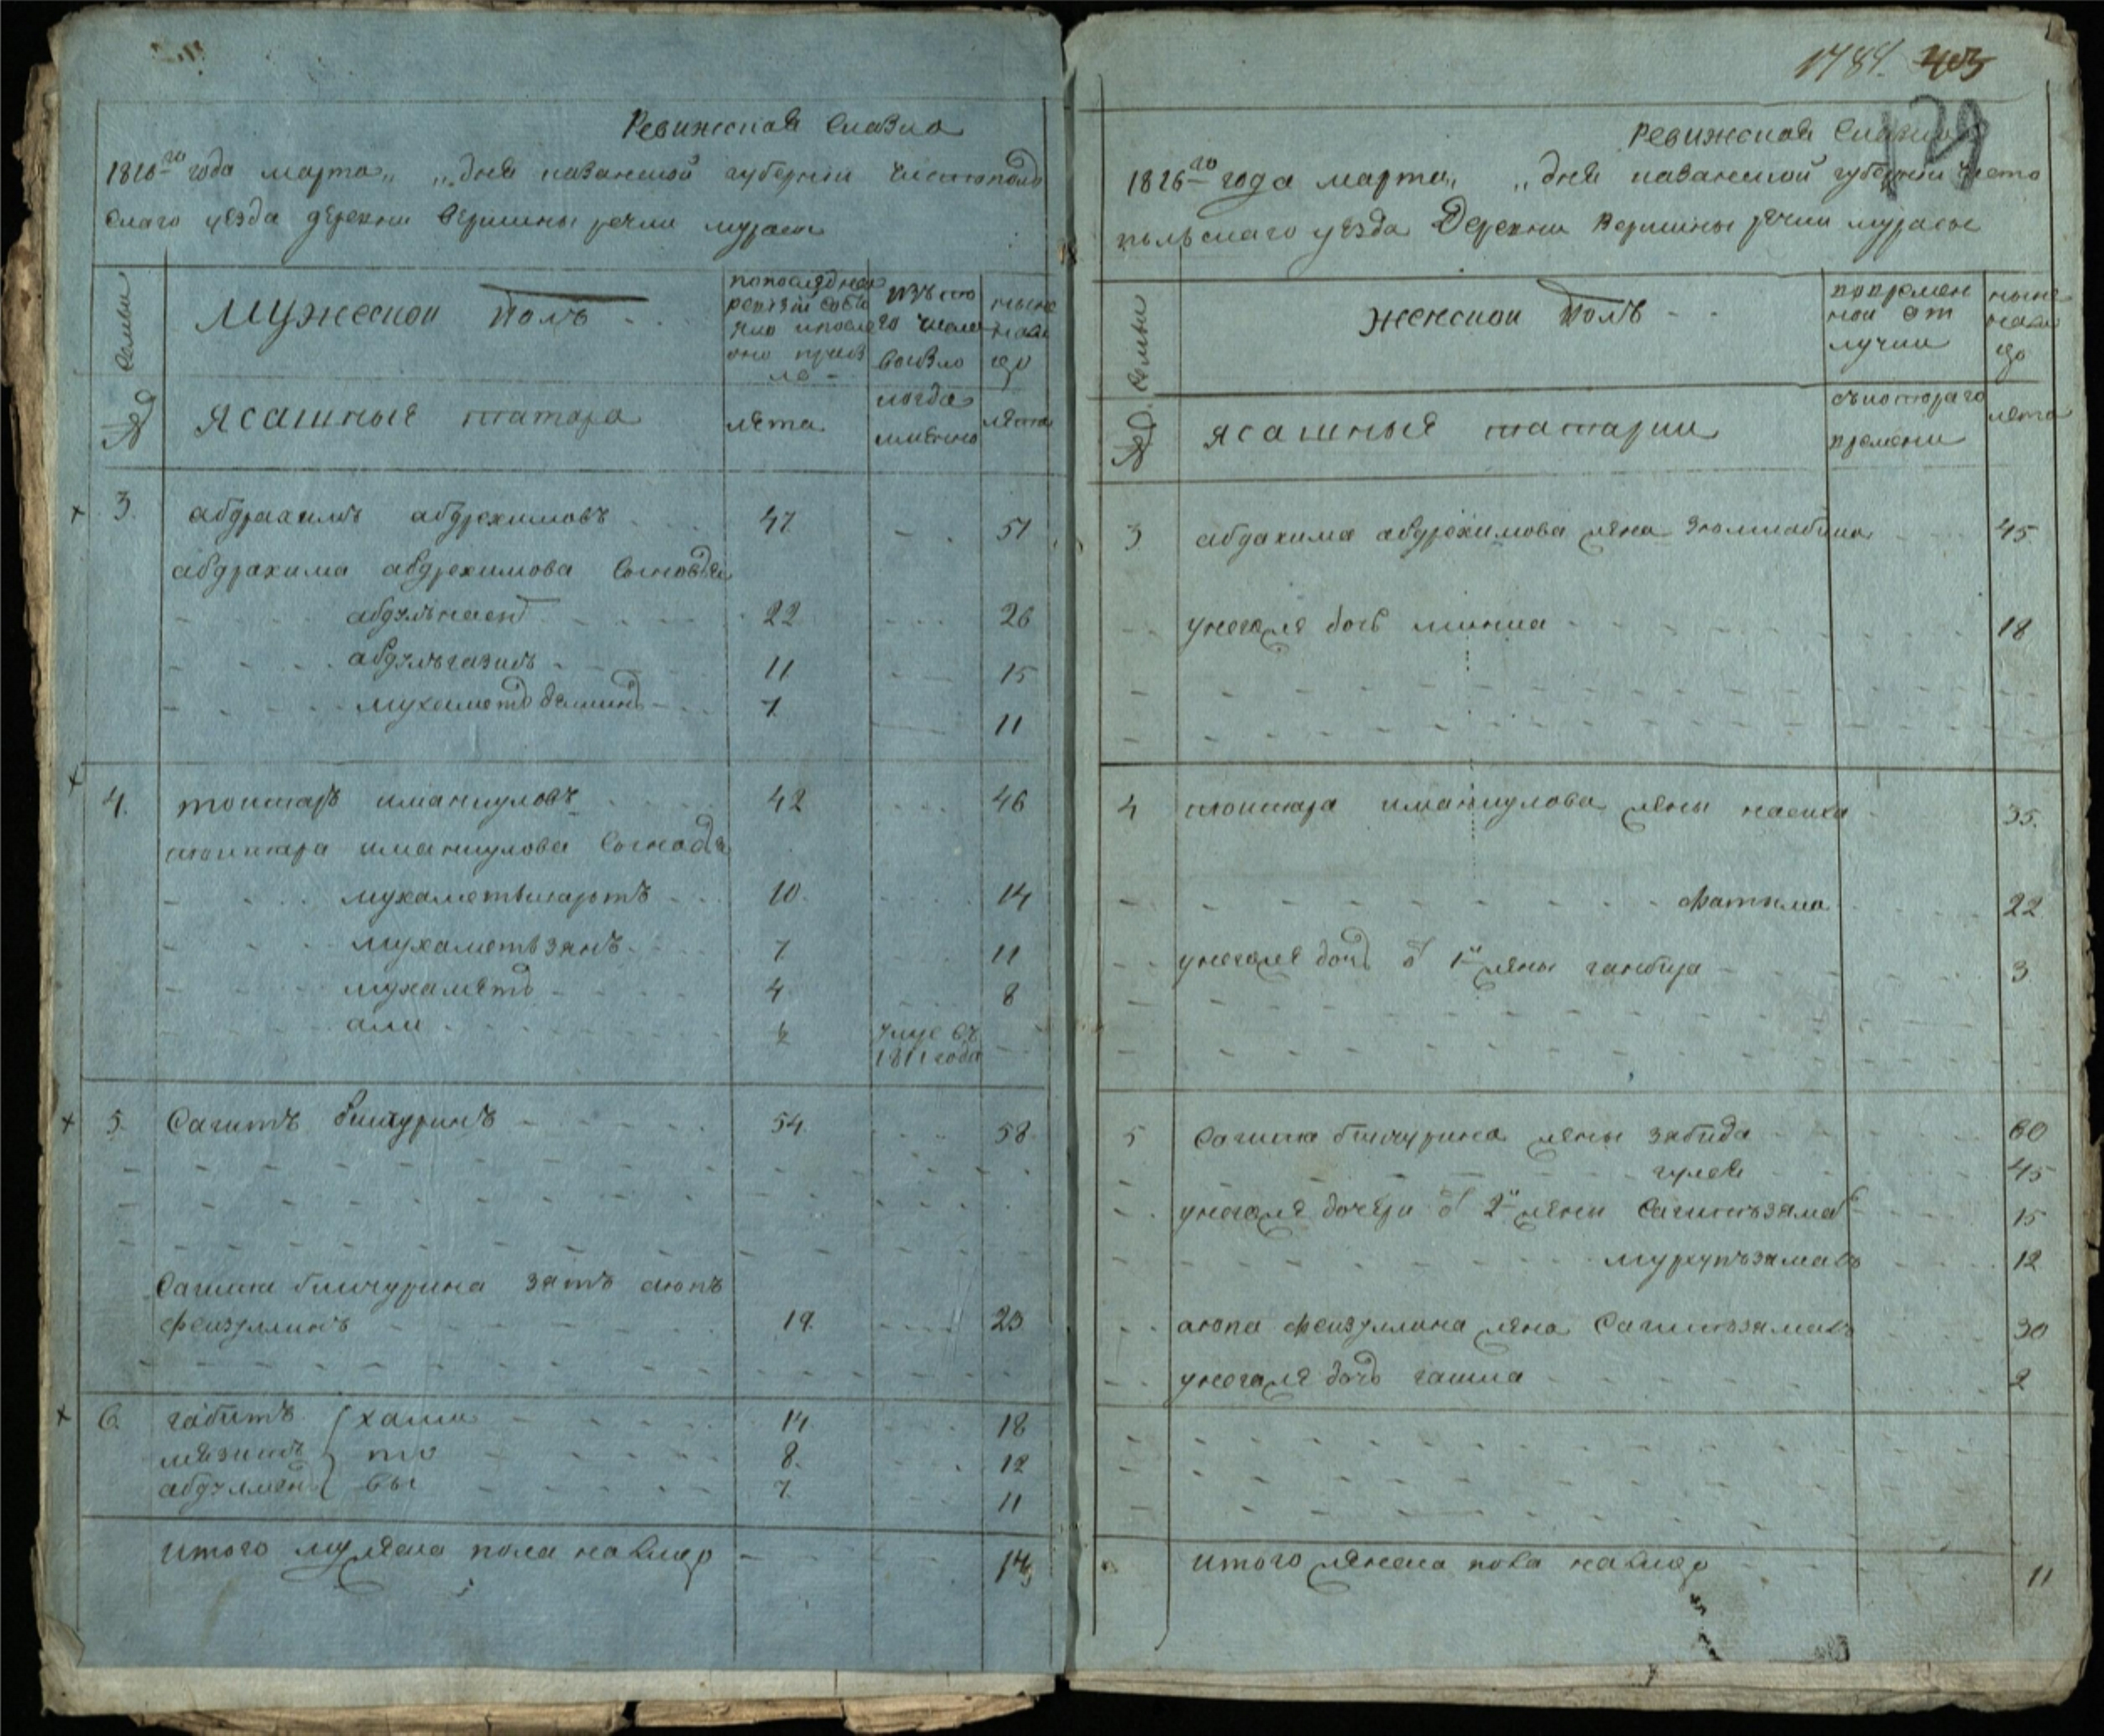 Ревижская Сказка
1816го года марта „ „ дня казанской губернии Чистополь
скаго уезда деревни вершины речки мурасы
№ Семьи
Мужеской полъ
попоследней
ревизіи состо
яло ипосле
оно прибы
ло
изъ то
го числа
выбыло
ныне
нали
цо
Ясашныя татара
лета
когда
имянно
лета
3. абдрахимъ абдрехимовъ 47 51
абдрахима абдрехимова Сыновья
абдулънасыт 22 26
абдулъгазизъ 11 15
мухаметъ 7. 11
4. тоиктаръ иманкуловъ 42 46
тоиктара иманкулова Сыновья
мухаметьшарыпъ 10. 14
мухаметьзянъ 7. 11
мухаметъ 4 8
али умре въ
1811 года
5. Сагитъ бикчуринъ 54. 58
Сагита бикчурина зять аюпъ
феизуллинъ 19. 23
6. габитъ хами 14. 18
мязитъ то 8. 12
абдулмен вы 7. 11
итого мужеска пола налицо 14
1784. 403
179
Ревижская Сказка
1816го года марта „ „ дня казанской губернии Чисто
польскаго уезда Деревни Вершины речки мурасы
№ Семьи
женской полъ
вовремен
ной от
лучки
ныне
нали
цо
ясашныя татарки
съкотораго
времени
лета
3 абдахима абдрехимова жена 45
унегоже дочь 18
4 тоиктара иманкулова жены насиха 35.
фатима 22
унегоже дочь от 1й жены ганбира 3
5 Сагита бикчурина жены забида 60
гулса 45
унегоже дочери от 2й жены Сагитьзямал 15
мухупъзямалъ 12
аюпа феизуллина жена Сагитьзямалъ 30
унегоже дочь гашиа 2
итого женска пола налицо 11